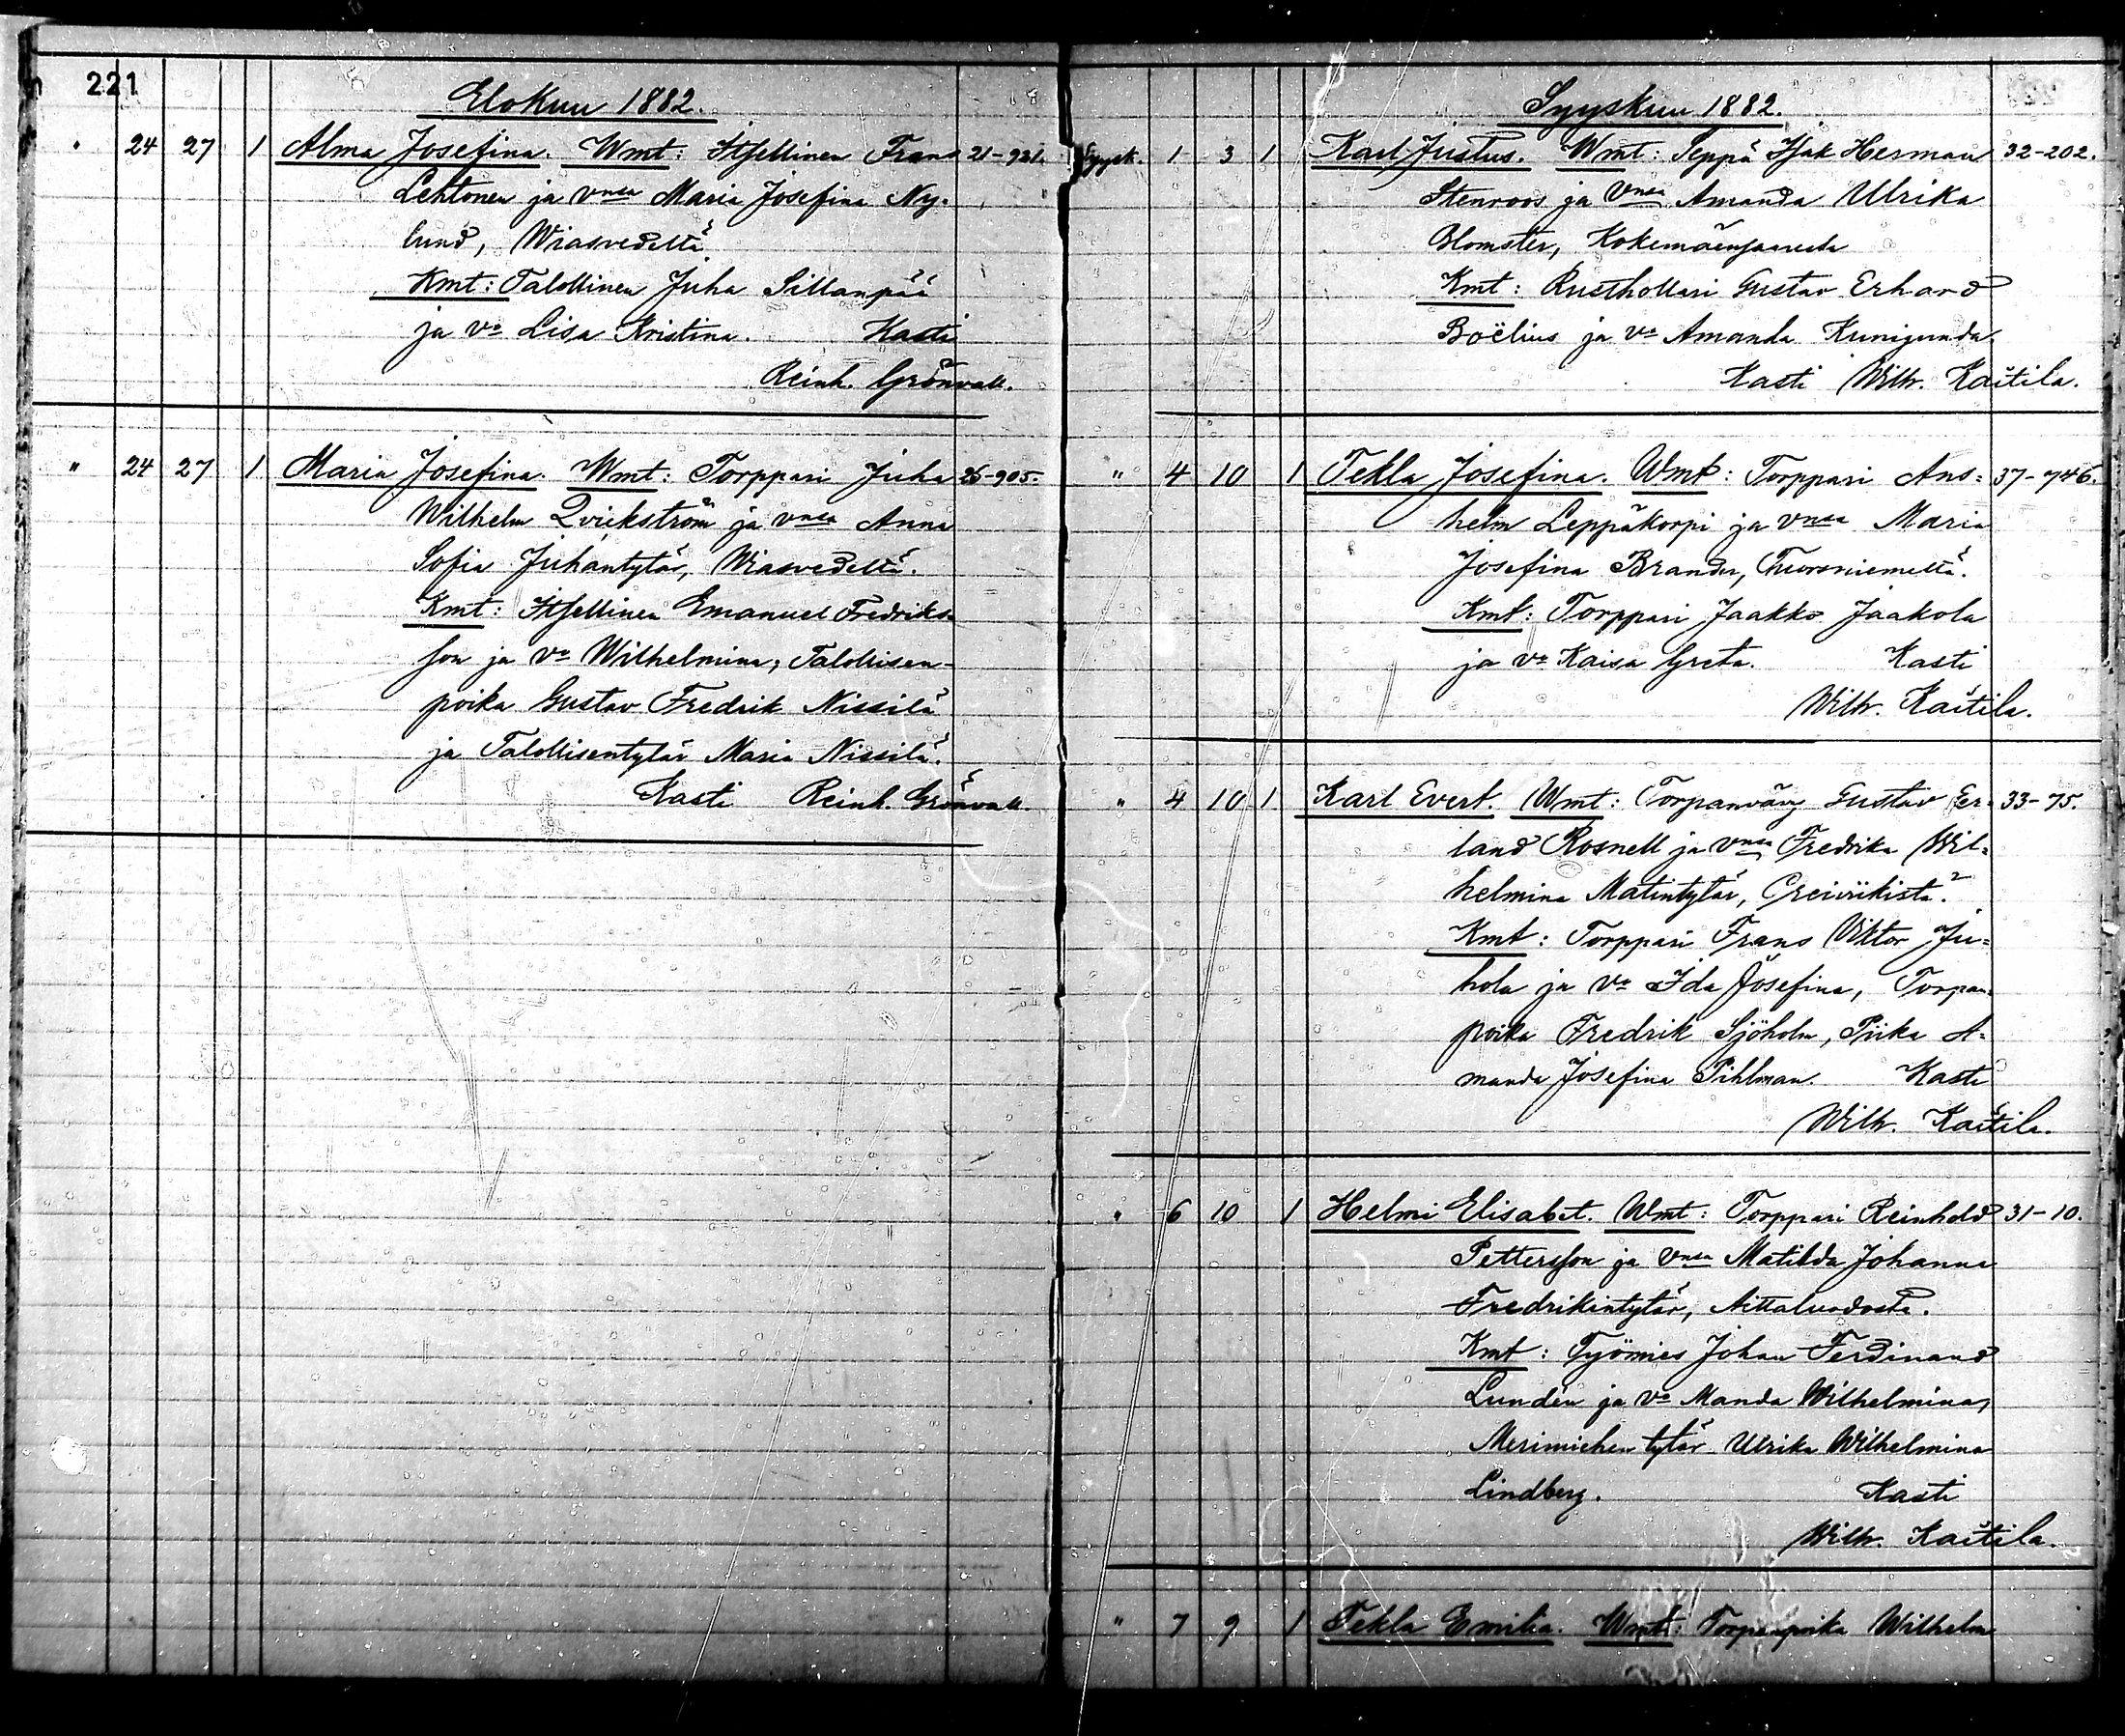 221
Elokuu 1882.
" 24 27 1 Alma Josefina. Wmt: Itsellinen Frans 21-921.
Lehtonen ja vnsa Maria Josefina Ny-
lund, Wiasvedeltä.
Kmt: Talollinen Juha Sillanpää
ja vo Lisa Kristina. Kasti
Reinh. Grönvall.
" 24 27 1 Maria Josefina. Wmt: Torppari Juha 25-905.
Wilhelm Qvickström ja vnsa Anna
Sofia Juhantytär, Wiasvedeltä.
Kmt: Itsellinen Emanuel Fredriks-
son ja vo Wilhelmina, Talollisen-
poika Gustav Fredrik Nissilä
ja Talollisentytär Maria Nissilä.
Kasti Reinh. Grönvall.
Syyskuu 1882.
Syysk. 1 3 1 Karl Justus. Wmt: Seppä Isak Herman 32-202.
Stenroos ja Vnsa Amanda Ulrika
Blomster, Kokemäensaaresta
Kmt: Rusthollari Gustav Erhard
Boëlius ja vo Amanda Kunigunda.
Kasti Wilh. Kaitila.
" 4 10 1 Tekla Josefina. Wmt: Torppari Ans= 37-746.
helm Leppäkorpi ja vnsa Maria
Josefina Brander, Tuorsniemeltä.
Kmt: Torppari Jaakko Jaakola
ja vo Kaisa Greta. Kasti
Wilh. Kaitila.
" 4 10 1 Karl Evert. Wmt: Torpanväy Gustav Er= 33-75.
land Rosnell ja vnsa Fredrika Wil=
helmina Matintytär,
Kmt: Torppari Frans Viktor Ju=
hola ja vo Ida Josefina, Torpan=
poika Fredrik Sjöholm, Piika A=
manda Josefina Pihlman. Kasti
Wilh. Kaitila.
" 6 10 1 Helmi Elisabet. Wmt: Torppari Reinhold 31-10.
Pettersson ja vnsa Matilda Johanna
Fredrikintytär, Aittaluodosta.
Kmt: Työmies Johan Ferdinand
Lundén ja vo Manda Wilhelmina,
Merimiehen tytär Ulrika Wilhelmina
Lindberg. Kasti
Wilh. Kaitila.
" 7 9 1 Tekla Emilia. Wmt: Torpanpoika Wilhelm